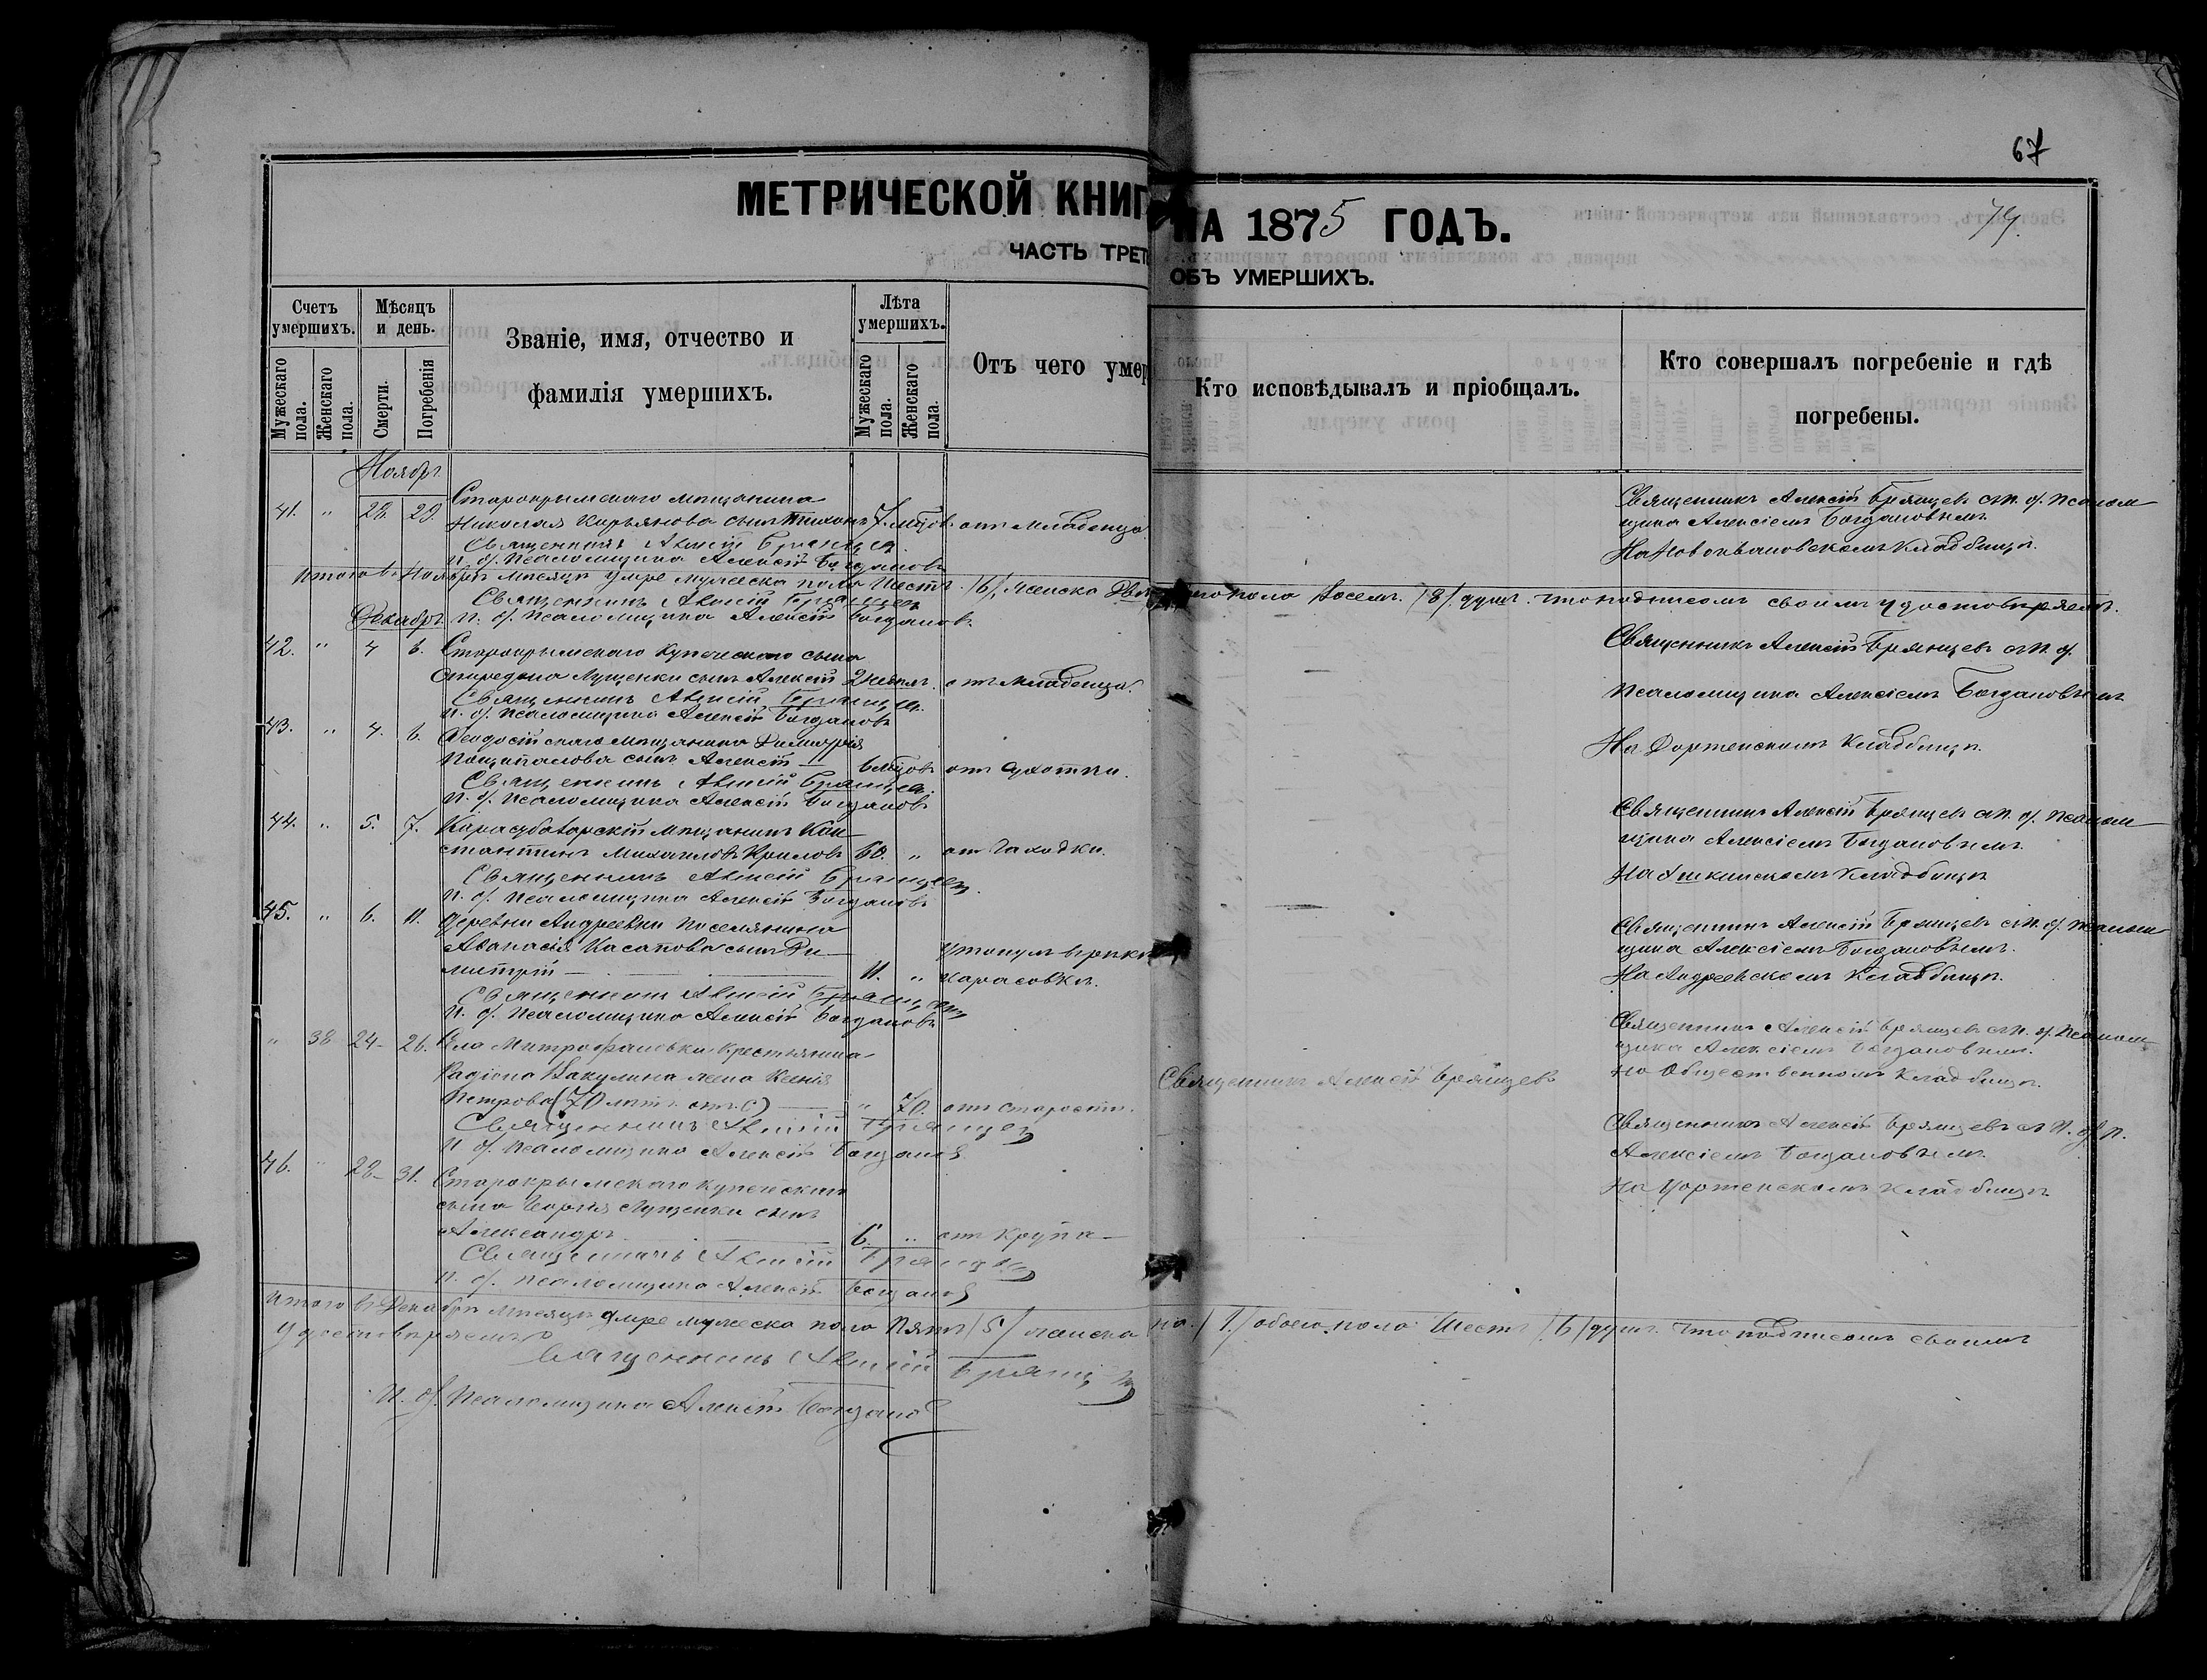 67
79.
МЕТРИЧЕСКОЙ КНИГ
НА 1875 ГОДЪ.
ЧАСТЬ ТРЕТ
ОБЪ УМЕРШИХЪ.
Счетъ умершихъ.
Мужескаго пола.
Женскаго пола.
Мѣсяцъ и день.
Смерти.
Погребенія
Званіе, имя, отчество и
фамилія умершихъ.
Лѣта умершихъ.
Мужескаго пола.
Женскаго пола.
Отъ чего умер
Кто исповѣдывалъ и пріобщалъ.
Кто совершалъ погребеніе и гдѣ
погребены.
Ноябрь
41. " 28. 29. Старокрымскаго мѣщанина
Николая Кирьянова сынъ Тихонъ 7. мѣцов. отъ младенца
Священникъ Алексій Брянцевъ
И. д. Псаломщика Алексѣй Богдановъ
Священникъ Алексій Брянцевъ съ И. д. Псалом
щика Алексіемъ Богдановымъ.
На Новоивановскомъ кладбищѣ.
Итого въ Ноябрѣ мѣсяцѣ умре мужеска пола Шесть /6/, женска Две
пола Восемь /8/ душъ. Что подписомъ своимъ удостовѣряемъ.
Священникъ Алексій Брянцевъ
И. д. Псаломщика Алексѣй Богдановъ
Декабрь
42. " 4 6. Старокрымскаго купеческаго сына
Спиридона Лущенки сынъ Алексѣй 2 недѣл. отъ младенца.
Священникъ Алексій Брянцевъ
И. д. Псаломщика Алексѣй Богдановъ
Священникъ Алексій Брянцевъ съ И. д.
Псаломщика Алексіемъ Богдановымъ
43. " 4. 6. Феодосійскаго мѣщанина Димитрія
сынъ Алексѣй — 6 мѣцов отъ сухотки.
Священникъ Алексій Брянцевъ
И. д. Псаломщика Алексѣй Богдановъ
На кладбищѣ.
44. " 5. 7. Карасубазарскій мѣщанинъ Кон
стантинъ Михаиловъ Криловъ 60. " отъ чаходки.
Священникъ Алексій Брянцевъ
И. д. Псаломщика Алексѣй Богдановъ
Священникъ Алексій Брянцевъ съ И. д. Псалом
щика Алексіемъ Богдановымъ.
На кладбищѣ
45. " 6. 11. Деревни Андреевки поселянина
Аѳанасія Касапова сынъ Ди
митрій — 11. " Утонулъ в рѣкѣ
Карасовкѣ.
Священникъ Алексій Брянцевъ
И. д. Псаломщика Алексѣй Богдановъ
Священникъ Алексій Брянцевъ съ И. д. Псалом
щика Алексіемъ Богдановымъ.
На Андреевскомъ кладбищѣ.
" 38 24- 26. Села Митрофановки крестьянина
Радіона Вакулина жена Ксенія
Петрова (70 лѣтъ отъ) — " 70. отъ старости.
Священникъ Алексій Брянцевъ
И. д. Псаломщика Алексѣй Богдановъ
Священникъ Алексѣй Брянцевъ
Священникъ Алексій Брянцевъ съ И. д. Псалом
щика Алексіемъ Богдановымъ.
на Общественномъ кладбищѣ.
46. " 28- 31. Старокрымскаго купеческаго
сына Георгія Лущенки сынъ
Александръ — 6. " отъ крупа —
Священникъ Алексій Брянцевъ
И. д. псаломщика Алексѣй Богдановъ
Священникъ Алексій Брянцевъ съ И. д. п.
Алексіемъ Богдановымъ.
на кладбищѣ.
Итого въ Декабрѣ мѣсяцѣ умре мужеска пола Пять /5/ женска
/1./ обоего пола Шесть /6/ душъ. Что подписомъ своимъ
удостовѣряемъ
Священникъ Алексій Брянцевъ
И. д. Псаломщика Алексѣй Богдановъ